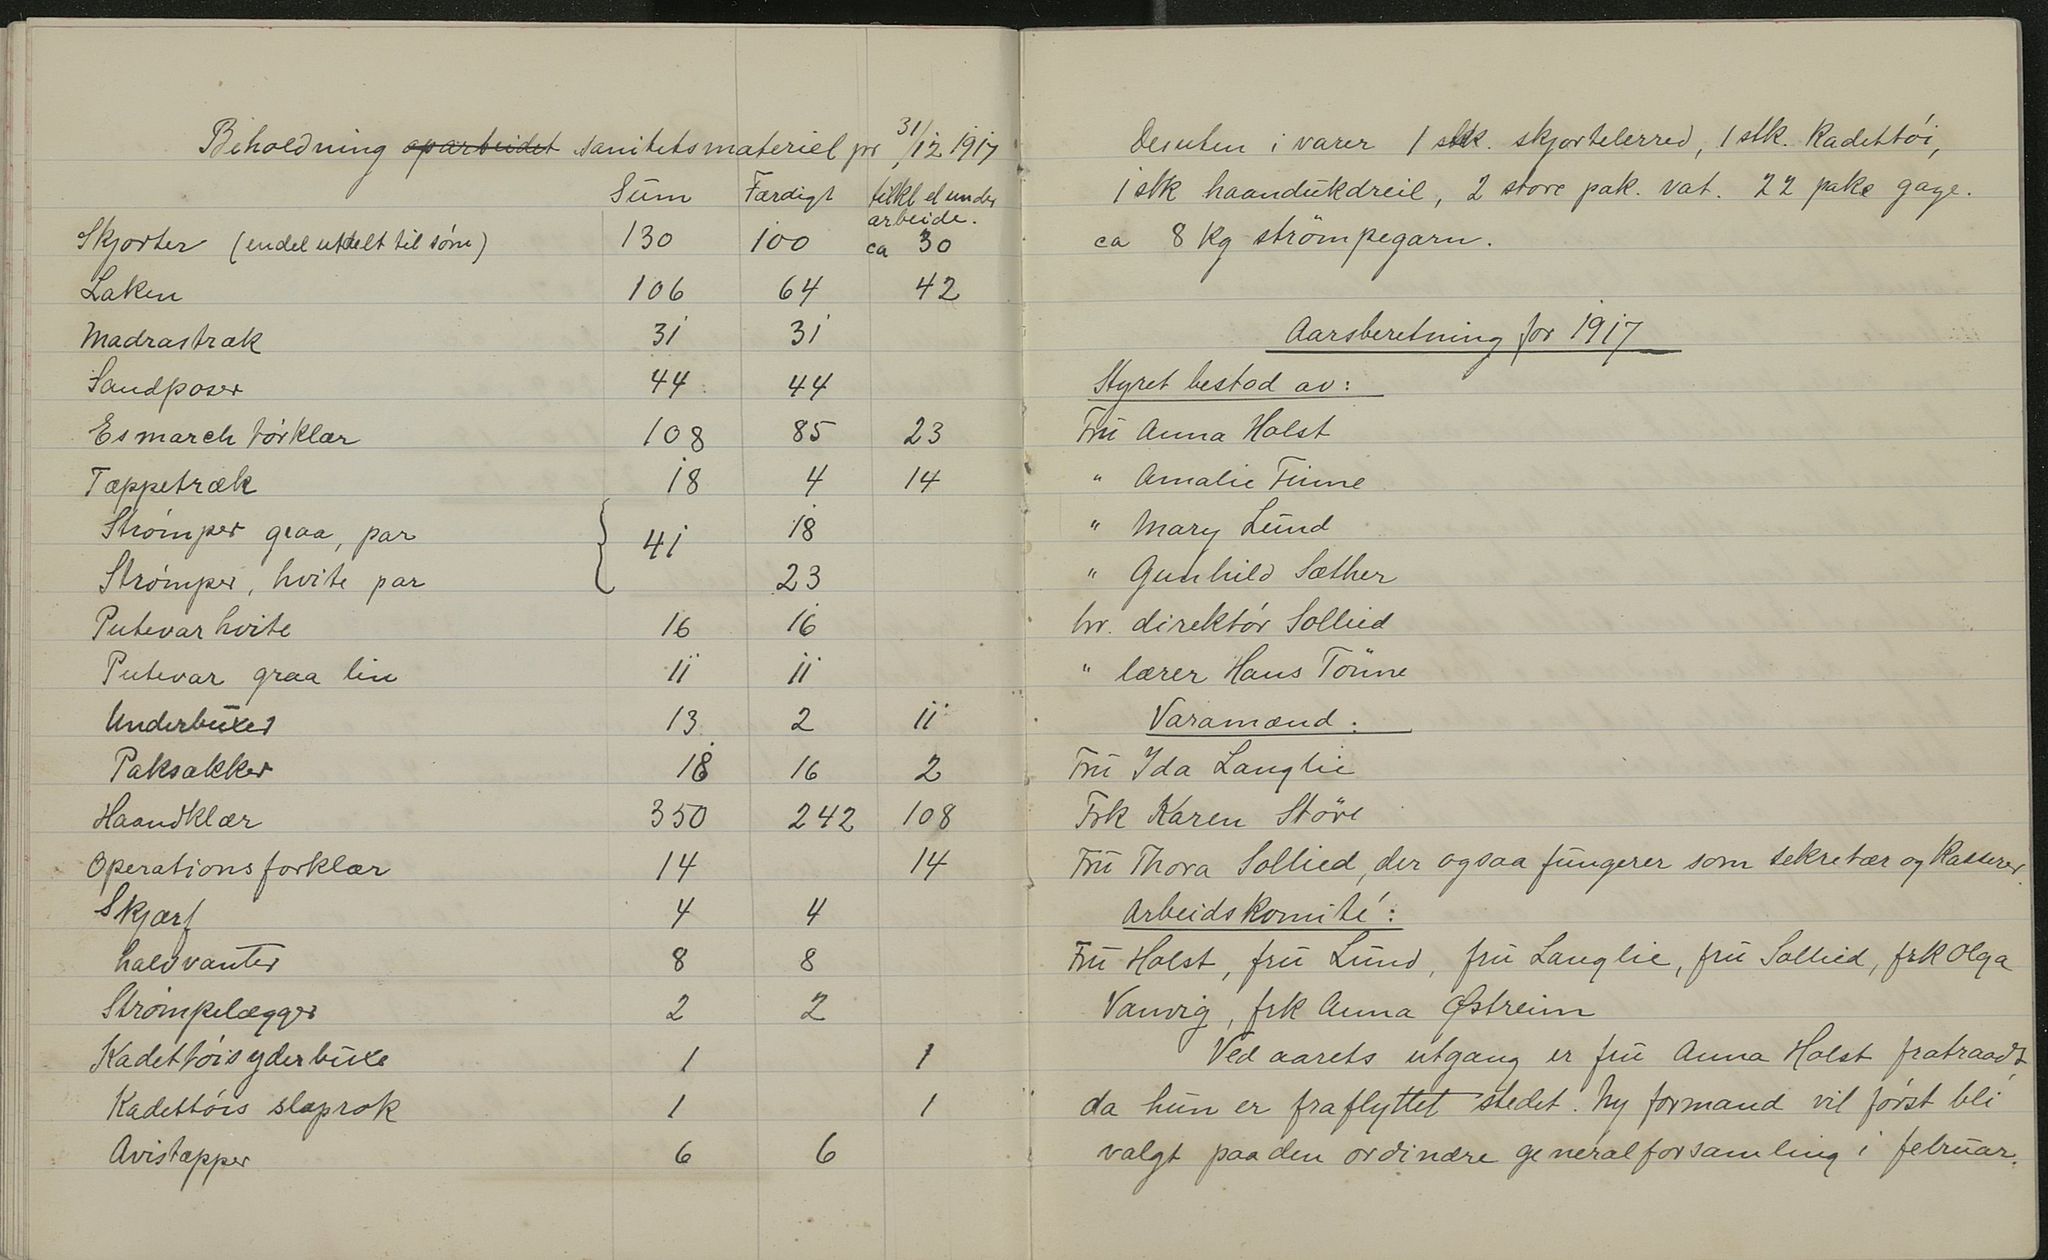 Beholdning oparbeidet sanitetsmateriel pr 31/12 1917
Sum Færdigt tilkl el under
arbeide.
Skjorter (endel utdelt til søm) 130 100 ca 30
Laken 106 64 42
Madrastræk 31 31
Sandposer 44 44
Esmarch tørklær 108 85 23
Tæppetræk 18 4 14
Strømper graa, par 41 18
Strømper, hvite par 23
Putevar hvite 16 16
Putevar graa lin 11 11
Underbuxer 13 2 11
Paksækker 18 16 2
Haandklær 350 242 108
Operationsforklær 14 14
Skjærf 4 4
halvvanter 8 8
Strømpelægger 2 2
Kadettøisyderbuxe 1 1
Kadettøis slaprok 1 1
Avistæpper 6 6
Desuten i varer 1 stk. skjortelerred, 1 stk. Kadettøi,
1 stk haandukdreil, 2 store pak. vat. 22 pake gaze.
ca 8 kg strømpegarn.
Aarsberetning for 1917
Styret bestod av:
Fru Anna Holst
" Amalie Finne
" Mary Lund
" Gunhild Sæther
hr. direktør Sollied
" lærer Hans Tönne
Varamænd:
Fru Ida Langlie
Frk Karen Störe
Fru Thora Sollied, der ogsaa fungerer som sekretær og kasserer.
Arbeidskomité:
Fru Holst, fru Lund, fru Langlie, fru Sollied, frk Olga
Vanvig, frk Anna Østreim
Ved aarets utgang er fru Anna Holst fratraadt,
da hun er fraflyttet stedet. Ny formand vil først bli
valgt paa den ordinære generalforsamling i februar.